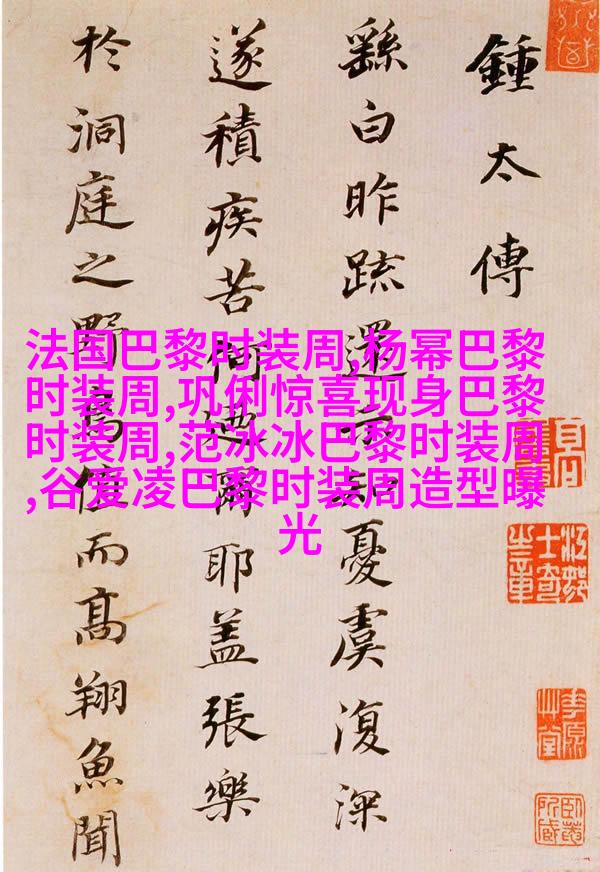 鍾太傅
繇白昨疏還示知憂虞復深
遂積疾苦何迺爾耶蓋張樂
於洞庭之野鳥值而高翔魚聞
法国巴黎时装周,杨幂巴黎
时装周,巩俐惊喜现身巴黎
时装周,范冰冰巴黎时装周
,谷爱凌巴黎时装周造型曝
光